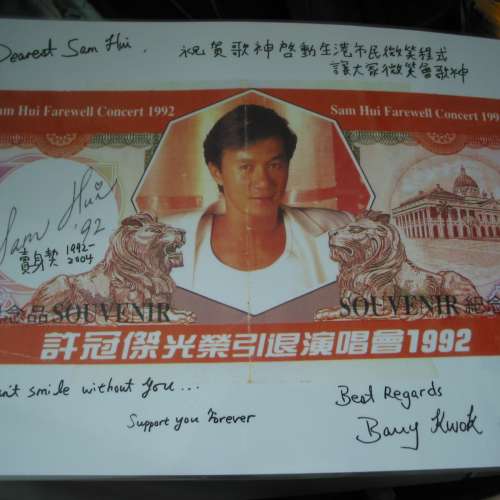 Dearest Sam Hui,
祝賀歌神啓動全港市民微笑程式
讓大家微笑會歌神
Sam Hui Farewell Concert 1992
Sam Hui Farewell Concert 199
Sam Hui
'92
賣身契 1992-
2004
念品 SOUVENIR
SOUVENIR 紀念
許冠傑光榮引退演唱會1992
an't smile without you...
Support you Forever
Best Regards
Barry Kwok